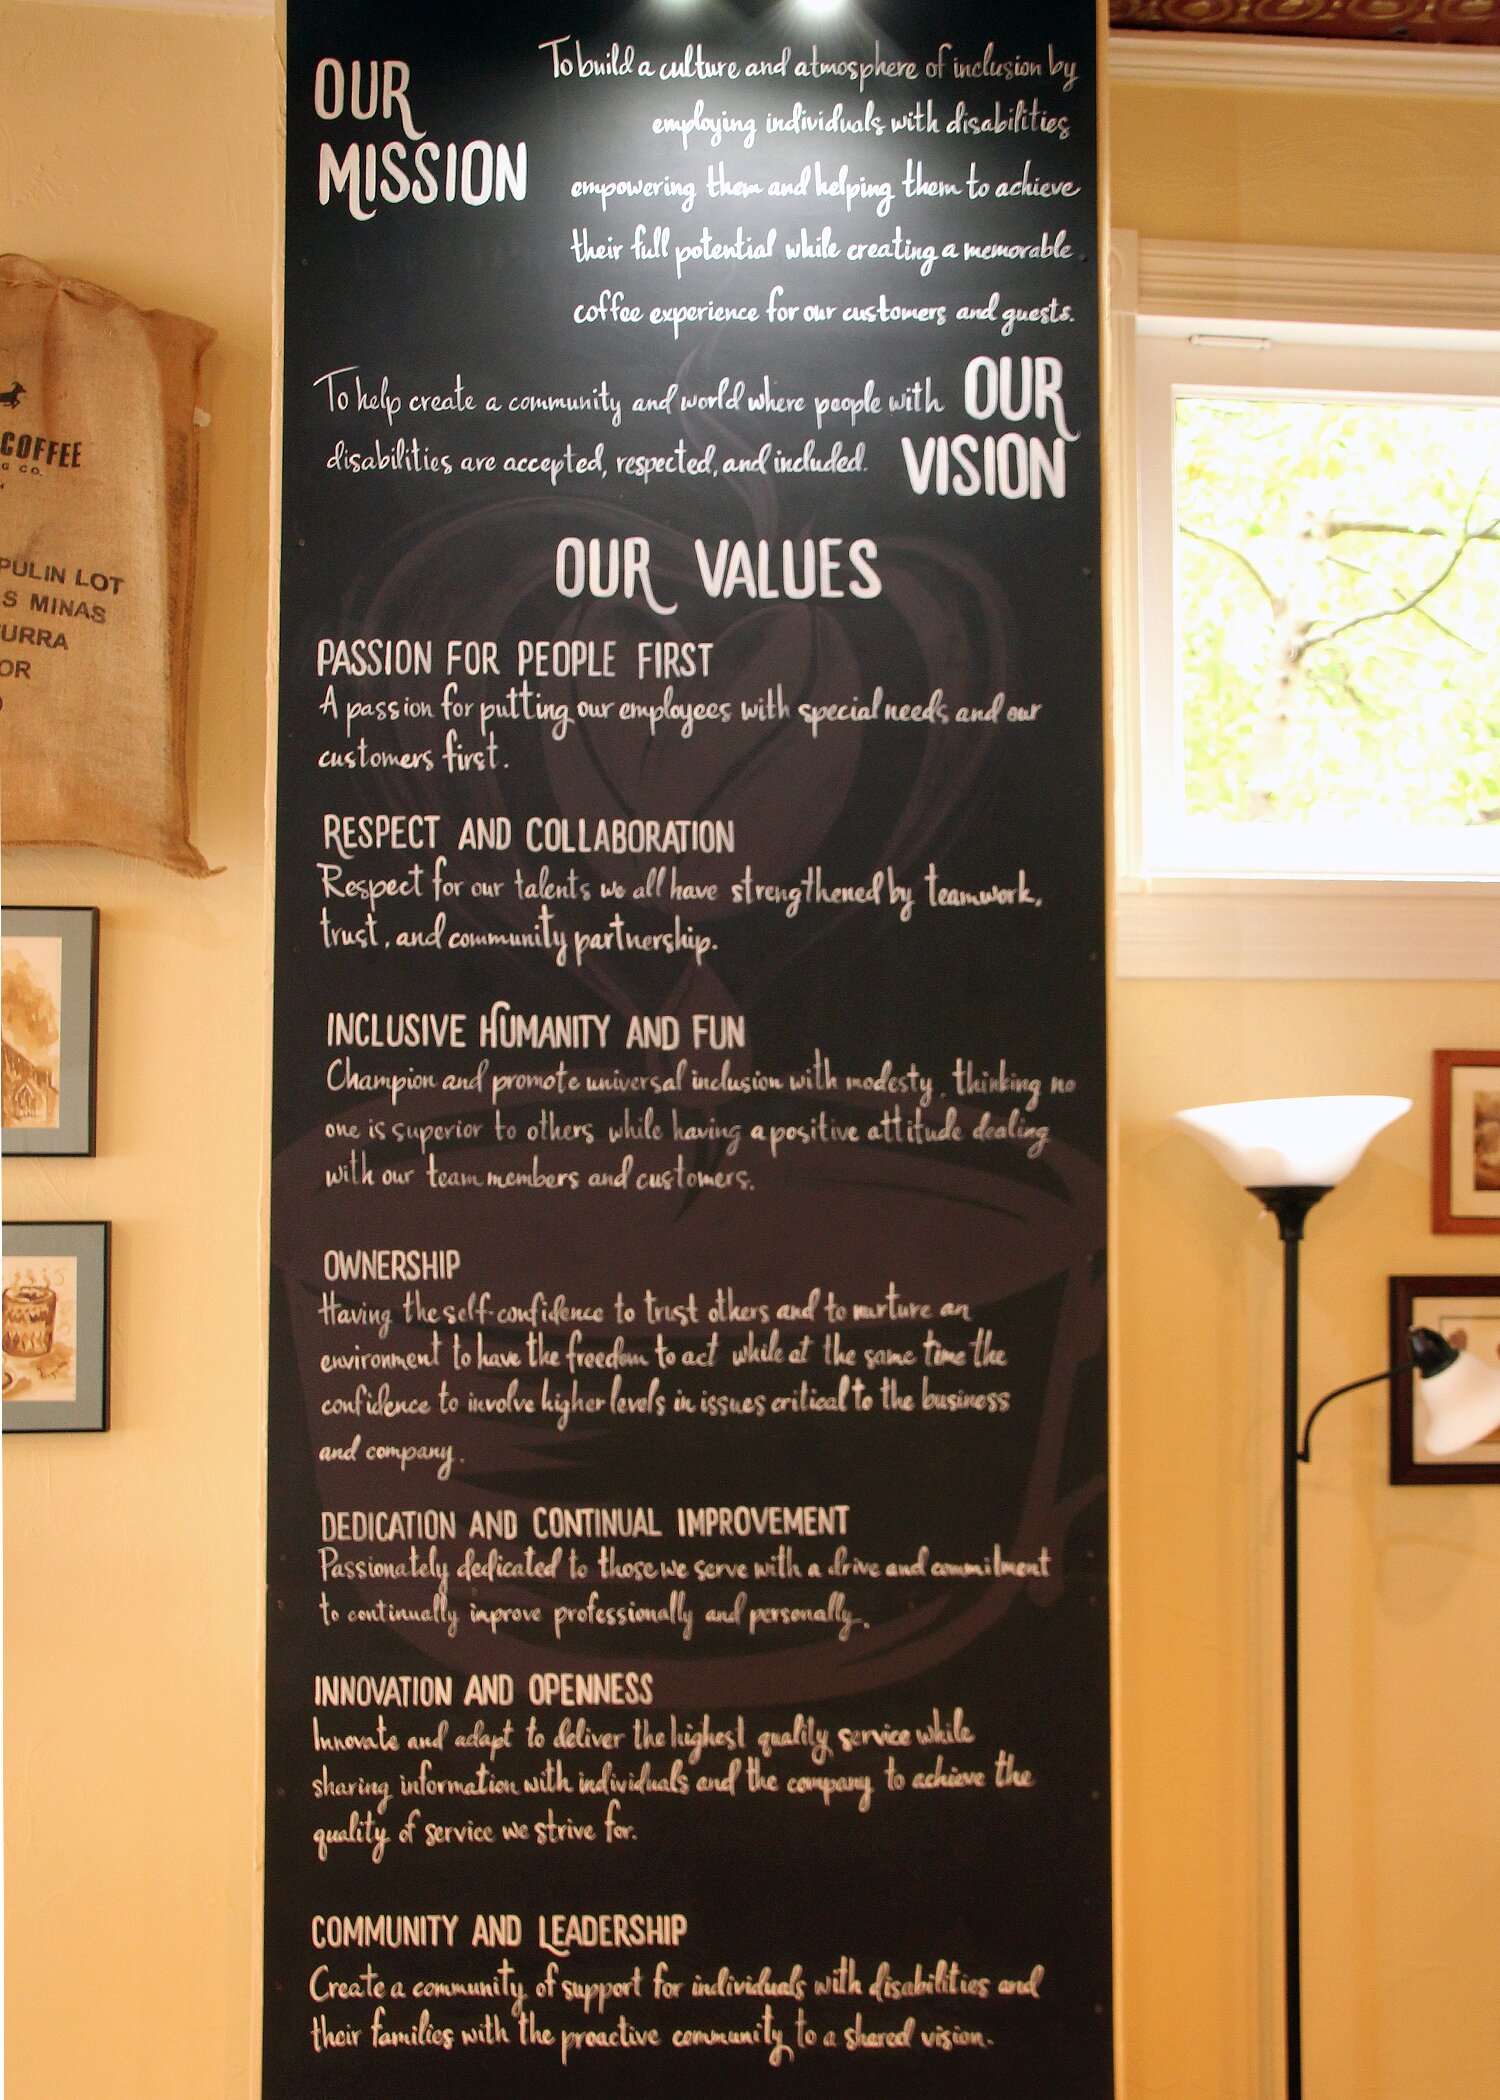 OUR
MISSION
To build a culture and atmosphere of inclusion by
employing individuals with disabilities
empowering them and helping them to achieve
their full potential while creating a memorable
coffee experience for our customers and guests.
To help create a community and world where people with
disabilities are accepted, respected, and included.
OUR
VISION
OUR VALUES
PASSION FOR PEOPLE FIRST
A passion for putting our employees with special needs and our
customers first.
RESPECT AND COLLABORATION
Respect for our talents we all have strengthened by teamwork,
trust, and community partnership.
INCLUSIVE HUMANITY AND FUN
Champion and promote universal inclusion with modesty, thinking no
one is superior to others while having a positive attitude dealing
with our team members and customers.
OWNERSHIP
Having the self-confidence to trust others and to nurture an
environment to have the freedom to act while at the same time the
confidence to involve higher levels in issues critical to the business
and company.
DEDICATION AND CONTINUAL IMPROVEMENT
Passionately dedicated to those we serve with a drive and commitment
to continually improve professionally and personally.
INNOVATION AND OPENNESS
Innovate and adapt to deliver the highest quality service while
sharing information with individuals and the company to achieve the
quality of service we strive for.
COMMUNITY AND LEADERSHIP
Create a community of support for individuals with disabilities and
their families with the proactive community to a shared vision.
COFFEE
G CO.
PULIN LOT
S MINAS
URRA
OR